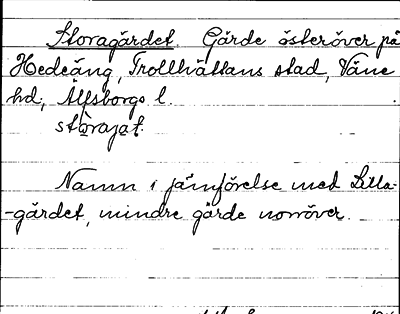 Storagärdet. Gärde österöver på
Hedeäng, Trollhättans stad, Väne
hd, Älfsborgs l.
storajat.
Namn i jämförelse med Lilla-
-gärdet, mindre gärde norröver.